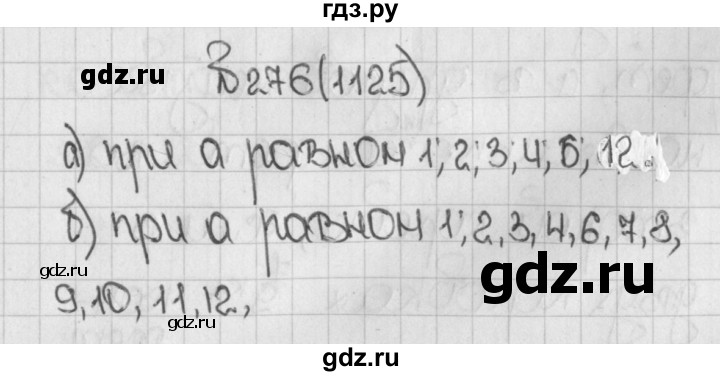 гдз.ру
gdz.ru
№276(1125)
а) при а равном 1; 2; 3; 4; 6; 12.
б) при а равном 1; 2, 3, 4, 6, 7, 8,
gdz.ru
gdz.ru
9, 10, 11, 12,
gdz.ru
gdz.ru